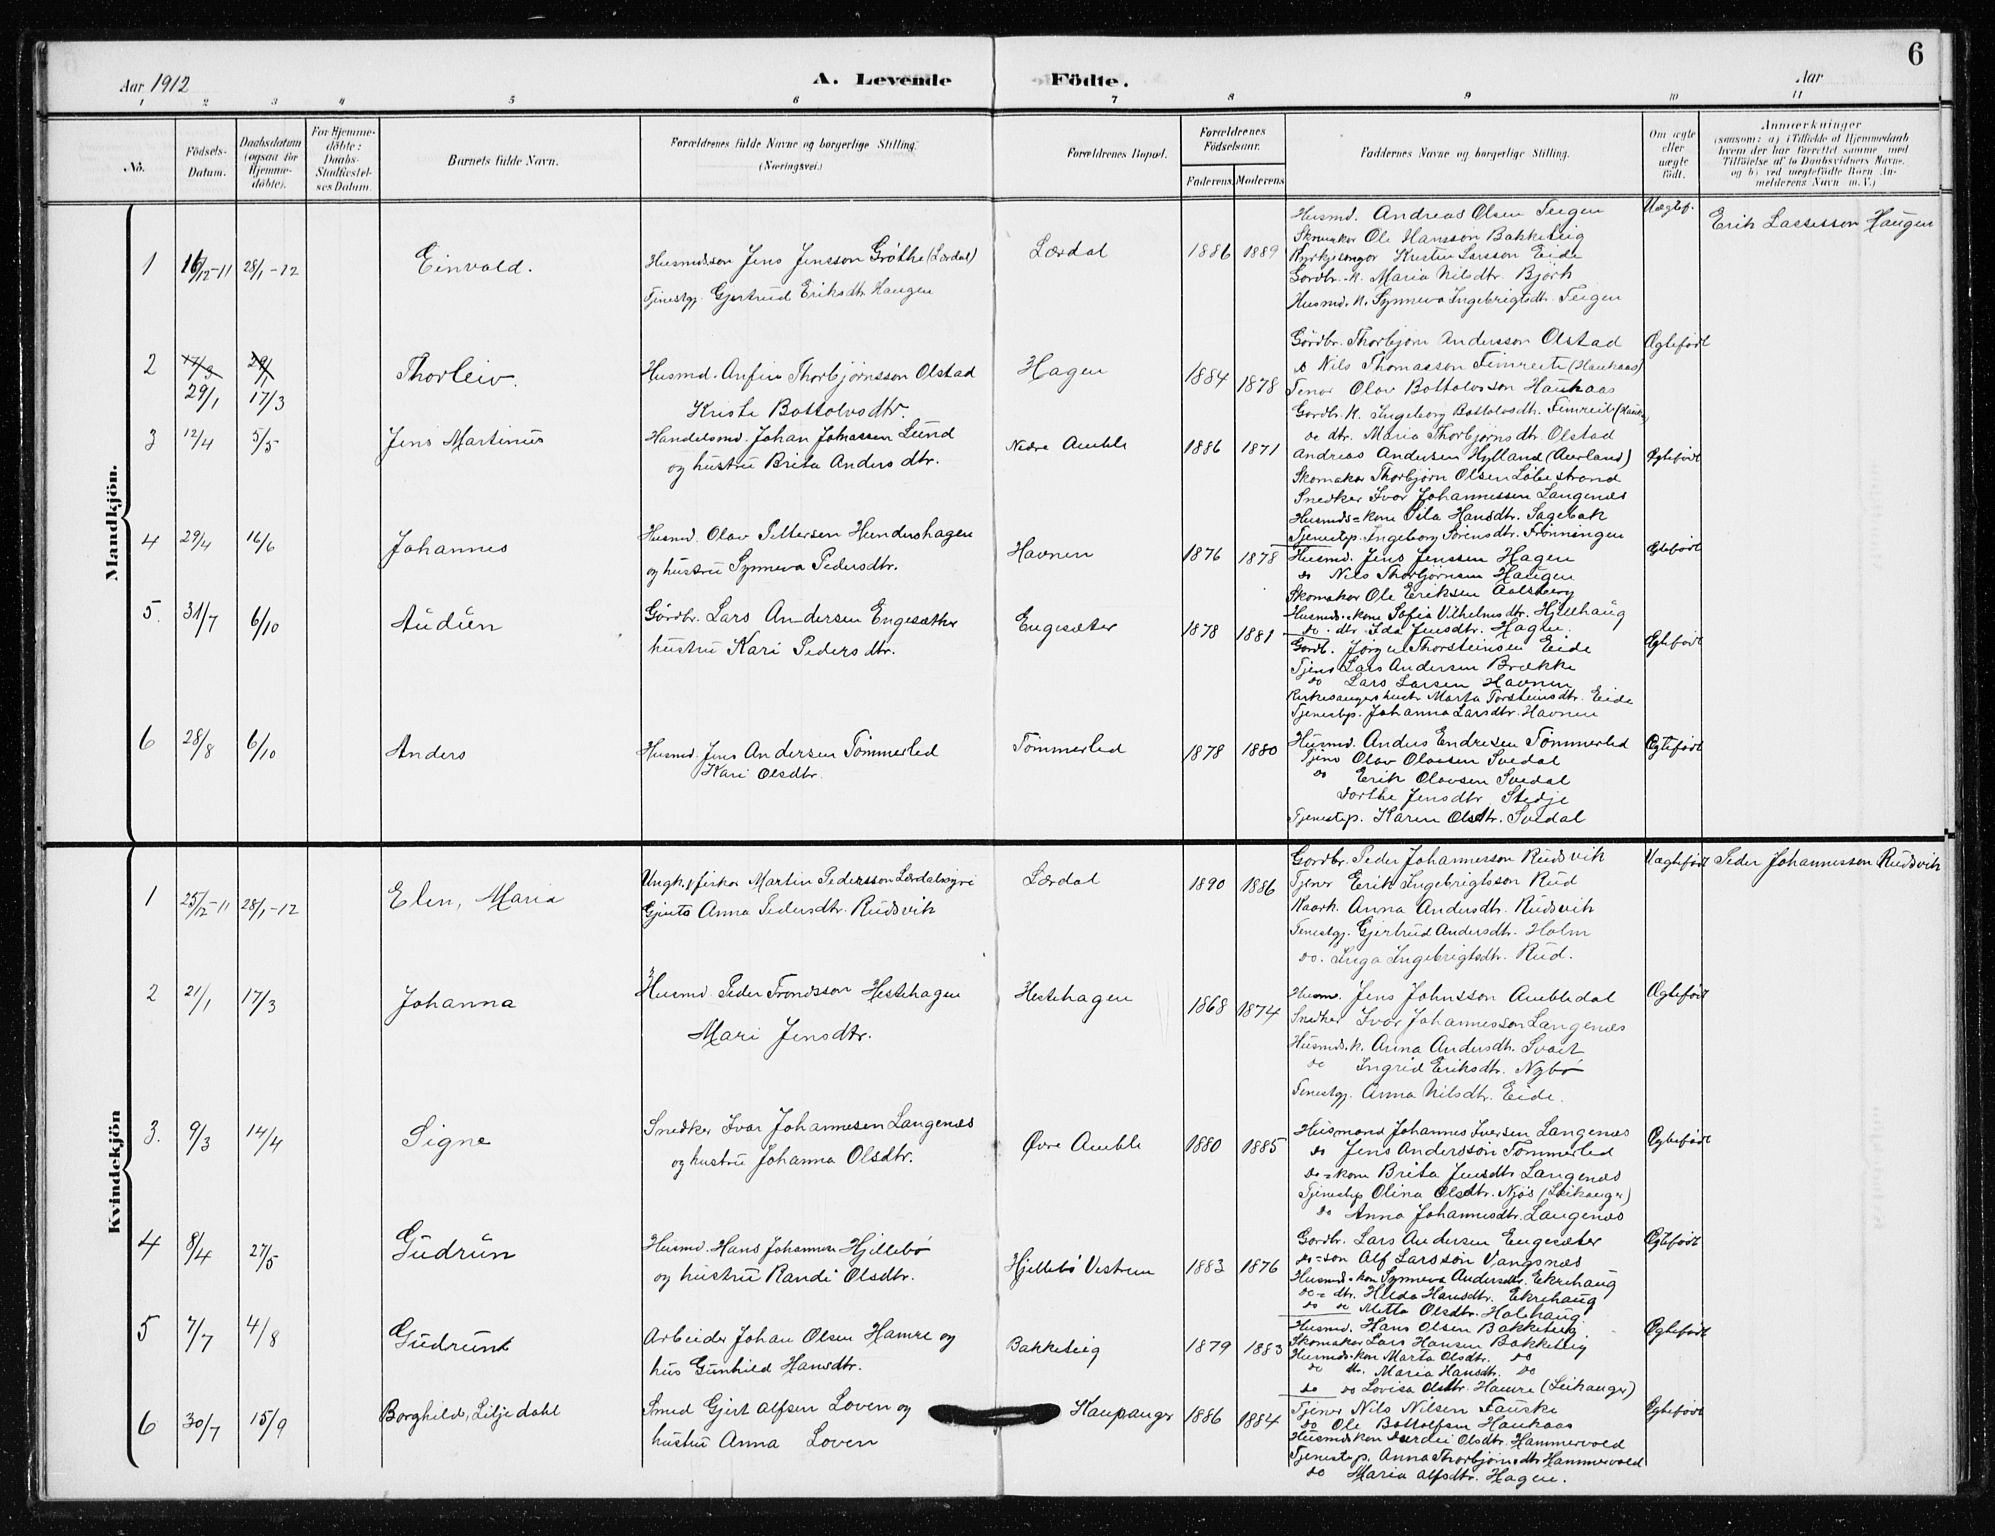 6
Aar 1912
A. Levende Födte.
Aar
1 2 3 4 5 6 7 8 9 10 11
No.
Födsels-Datum.
Daabsdatum (ogsaa for Hjemme-döbte).
For Hjemme-döbte: Daabs-Stadfæstel-ses Datum.
Barnets fulde Navn.
Forældrenes fulde Navne og borgerlige Stilling.
(Næringsvei.)
Forældrenes Bopæl.
Forældrenes Födselsaar.
Faderens Moderens
Faddernes Navne og borgerlige Stilling.
Om ægte eller uægte födt.
Anmærkninger
(saasom: a) i Tilfælde af Hjemmedaab
hvem der har forrettet samme med
Tilföielse af to Daabsvidners Navne.
og b) ved uægtefödte Börn An-
melderens Navn m. V.)
Mandkjön.
1 16/12-11 28/1-12 Einvald.
Husmdsson Jens Jensson Grøthe (Lærdal)
Tjenestgj. Gjertrud Eriksdtr. Haugen
Lærdal 1886 1889
Husmd. Andreas Olsen Teigen
Skomaker Ole Hansson Bakketeig
Kyrkjesongor Kristen Larsson Eide
Gardbr. K. Maria Nilsdtr. Bjørk
Husmd. K. Synneva Ingebrigtsdtr. Teigen
Uægtef. Erik Lassesson Haugen
2 17/3 29/1 29/1 17/3 Thorleiv.
Husmd. Anfin Thorbjørnsson Olstad
Kristi Bottolvsdtr.
Hagen 1884 1878
Gardbr. Thorbjørn Andersson Olstad
do Nils Thomasson Fimreite (Haukaas)
Tenar Olav Bottolvsson Haukaas
Gardbr. K. Ingeborg Bottolvsdtr. Fimreite
do dtr. Maria Thorbjørnsdtr. Olstad
Ægtefødt
3 12/4 5/5 Jens Martinus
Handelsmd. Johan Johnassen Lund
og hustru Brita Andersdtr.
Nedre Amble 1886 1871
Andreas Andersen Hylland (Aurland)
Skomaker Thorbjørn OlsenLøbestrand
Snedker Ivar Johannessen Langenæs
Husmds-kone Sila Hansdtr. Sagebak
Tjenestep. Ingeborg Sørensdtr. Frønningen
Ægtefødt
4 29/4 16/6 Johannes
Husmd. Olav Pettersen Hundershagen
og hustru Synneva Pedersdtr.
Havnen 1876 1878
Husmd. Jens Jenssen Hagen
do Nils Thorbjørnsen Haugen
Skomaker Ole Eriksen Aalsberg
Husmds.-kone Sofia Vilhelmsdtr. Hjellhaug
do. dtr. Ida Jensdtr. Hagen.
Ægtefødt
5. 31/7 6/10 Audun
Gårdbr. Lars Andersen Engesæther
hustru Kari Pedersdtr.
Engesæter 1878 1881
Gardb. Jørgen Thorsteinsen Eide
Tjener Lars Andersen Brække
do Lars Larsen Havnen
Kirkesangerhustr. Marta Torsteinsdtr. Eide
Tjenestep. Johanna Larsdtr. Havnen
Ægtefødt
6 28/8 6/10 Anders
Husmd. Jens Andersen Tømmerled
Kari Olsdtr.
Tømmerled 1878 1880
Husmd. Anders Endresen Tømmerled
Tjens Olav Olavsen Svedal
do Erik Olavsen Svedal
Dorthe Jensdtr. Stedje
Tjenestep. Karen Olsdtr. Svedal
Ægtefødt
Kvindekjön
1 25/12-11 28/1-12 Elen, Maria
Ungk., fisker Martin Pedersson Lærdalsøyri
Gjenta Anna Pedersdtr. Rudsvik
Lærdal 1890 1886
Gardbr. Peder Johannesson Rudsvik
Tjener Erik Ingebrigtsson Rud
Kaark. Anna Andersdtr. Rudsvik
Tenestgj. Gjertrud Andersdtr. Holm
do. Inga Ingebrigtsdtr. Rud.
Uægtefødt Peder Johannesson Rudsvik
2 21/1 17/3 Johanna
Husmd. Peder Trondsson Hestehagen
Mari Jensdtr.
Hestehagen 1868 1874
Husm. Jens Johnsson Ambledal
Snedker Ivar Johannesson Langenæs
Husmds.k. Anna Andersdtr. Svait
do Ingrid Eriksdtr. Nybø
Tenestgj. Anna Nilsdtr. Eide.
Ægtefødt
3. 9/3 14/4 Signe
Snedker Ivar Johannesen Langenæs
og hustru Johanna Olsdtr.
Øvre Amble 1880 1885
Husmand Johannes Iversen Langenæs
do Jens Andersson Tømmerled
do-kone Brita Jensdtr. Langenæs
Tjenestep Olina Olsdtr. Njøs (Leikanger)
do Anna Johannesdtr. Langenæs
Ægtefødt
4 8/4 27/5 Gudrun
Husmd. Hans Johannesen Hjellebø
og hustru Randi Olsdtr.
Hjellebø Vestrem 1883 1876
Gardbr. Lars Andersen Engesæter
do-son Alf Larsson Vangsnæs
Husmds-kone Synneva Andersdtr. Ekrehaug
do-dtr. Hilda Hansdtr. Ekrehaug
do do Metta Olsdtr. Holehaug
Ægtefødt
5 7/7 4/8 Gudrun
Arbeider Johan Olsen Hamre og
hus Gunhild Hansdtr.
Bakketeig 1879 1883
Husmd. Hans Olsen Bakketeig.
Skomaker Lars Hansen Bakketeig
Husmds.kon Marta Olsdtr. do
do dtr. Maria Hansdtr. do
do do Lovisa Olsdtr. Hamre (Leikanger)
Ægtefødt
6 30/7 15/9 Borghild, Liljedahl
Smed Gjert Alfsen Loven og
hustru Anna Loven
Kaupanger 1886 1884
Tjener Nils Nilsen Fauske
do Ole Bottolfsen Haukaas
Husmdskon Durdei Olsdtr. Hammervold
Tjenestep. Anna Thorbjørnsdtr. Hammervold
do Maria Alfsdtr. Hagen.
Ægtefødt